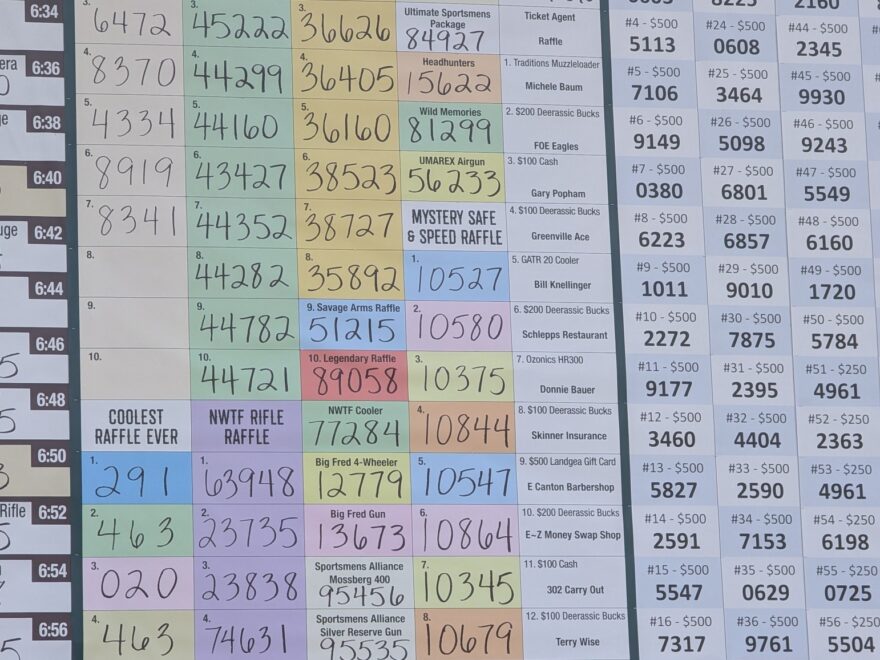 6:34
6:36
6:38
6:40
6:42
6:44
6:46
6:48
6:50
6:52
Rifle
6:54
6:56
3. 6472
4. 8370
5. 4334
6. 8919
7. 8341
8.
9.
10.
COOLEST
RAFFLE EVER
1. 291
2. 463
3. 020
4. 463
3. 45222
4. 44299
5. 44160
6. 43427
7. 44352
8. 44282
9. 44782
10. 44721
NWTF RIFLE
RAFFLE
1. 63948
2. 23735
3. 23838
4. 74631
3. 36626
4. 36405
5. 36160
6. 38523
7. 38727
8. 35892
9. Savage Arms Raffle
51215
10. Legendary Raffle
89058
NWTF Cooler
77284
Big Fred 4-Wheeler
12779
Big Fred Gun
13673
Sportsmens Alliance
Mossberg 400
95456
Sportsmens Alliance
Silver Reserve Gun
95535
Ultimate Sportsmens
Package
84927
Headhunters
15622
Wild Memories
81299
UMAREX Airgun
56233
MYSTERY SAFE
& SPEED RAFFLE
1. 10527
2. 10580
3. 10375
4. 10844
5. 10547
6. 10864
7. 10345
8. 10679
Ticket Agent
Raffle
1. Traditions Muzzleloader
Michele Baum
2. $200 Deerassic Bucks
FOE Eagles
3. $100 Cash
Gary Popham
4. $100 Deerassic Bucks
Greenville Ace
5. GATR 20 Cooler
Bill Knellinger
6. $200 Deerassic Bucks
Schlepps Restaurant
7. Ozonics HR300
Donnie Bauer
8. $100 Deerassic Bucks
Skinner Insurance
9. $500 Landgea Gift Card
E Canton Barbershop
10. $200 Deerassic Bucks
E~Z Money Swap Shop
11. $100 Cash
302 Carry Out
12. $100 Deerassic Bucks
Terry Wise
#4 - $500
5113
#5 - $500
7106
#6 - $500
9149
#7 - $500
0380
#8 - $500
6223
#9 - $500
1011
#10 - $500
2272
#11 - $500
9177
#12 - $500
3460
#13 - $500
5827
#14 - $500
2591
#15 - $500
5547
#16 - $500
7317
#24 - $500
0608
#25 - $500
3464
#26 - $500
5098
#27 - $500
6801
#28 - $500
6857
#29 - $500
9010
#30 - $500
7875
#31 - $500
2395
#32 - $500
4404
#33 - $500
2590
#34 - $500
7153
#35 - $500
0629
#36 - $500
9761
2160
#44 - $500
2345
#45 - $500
9930
#46 - $500
9243
#47 - $500
5549
#48 - $500
6160
#49 - $500
1720
#50 - $500
5784
#51 - $250
4961
#52 - $250
2363
#53 - $250
4961
#54 - $250
6198
#55 - $250
0725
#56 - $250
5504